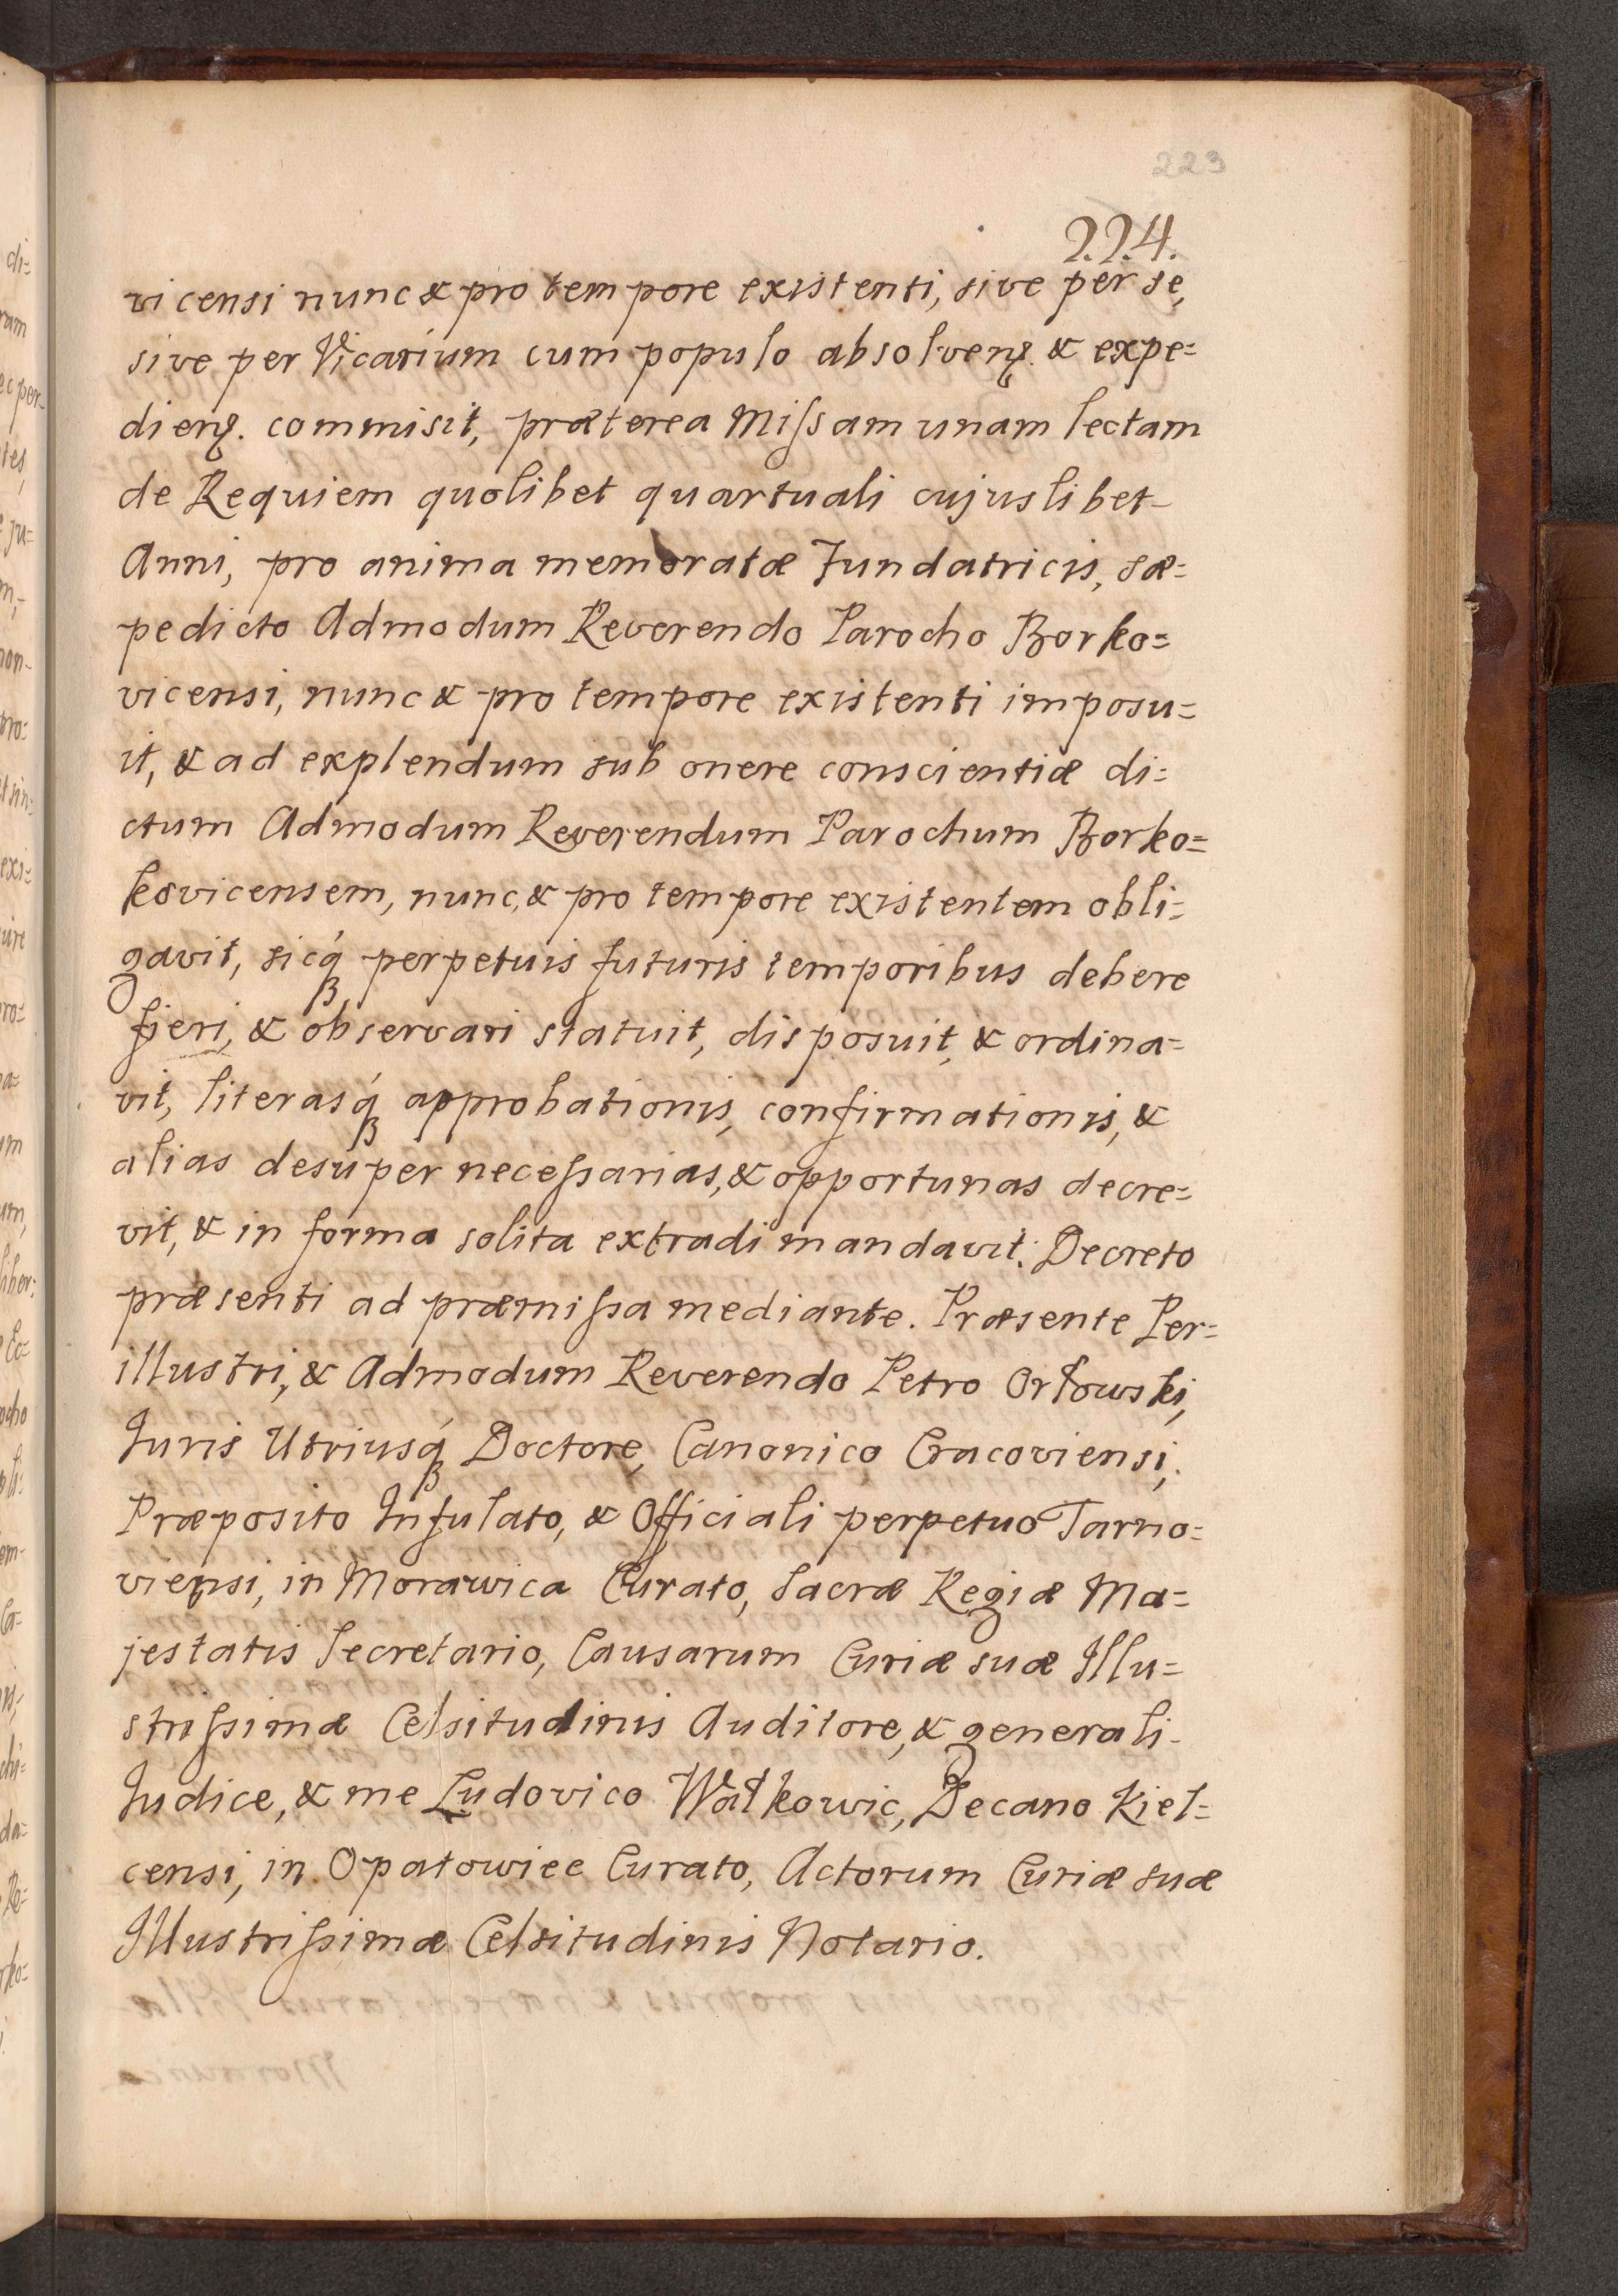 223
224.
vicensi nunc & pro tempore existenti, sive per se,
sive per Vicarium cum populo absolven. & expe=
dien. commisit, præterea Missam unam lectam
de Requiem quolibet quartuali cujuslibet
Anni, pro anima memoratæ Fundatricis, sæ=
pedicto Admodum Reverendo Parocho Borko=
vicensi, nunc & pro tempore existenti imposu=
it, & ad explendum sub onere conscientiæ di=
ctum Admodum Reverendum Parochum Borko=
kovicensem, nunc, & pro tempore existentem obli=
gavit, sicq́ perpetuis futuris temporibus debere
fieri, & observari statuit, disposuit, & ordina=
vit, literasq́ approbationis, confirmationis, &
alias desuper necessarias, & opportunas decre=
vit, & in forma solita extradi mandavit. Decreto
præsenti ad præmissa mediante. Præsente Per=
illustri, & Admodum Reverendo Petro Orłowski,
Juris Utriusq́ Doctore, Canonico Cracoviensi,
Præposito Infulato, & Officiali perpetuo Tarno=
viensi, in Morawica Curato, Sacræ Regiæ Ma=
jestatis Secretario, Causarum Curiæ suæ Illu=
strissimæ Celsitudinis Auditore, & generali
Judice, & me Ludovico Wałkowic, Decano Kiel=
censi, in Opatowiec Curato, Actorum Curiæ suæ
Illustrissimæ Celsitudinis Notario.